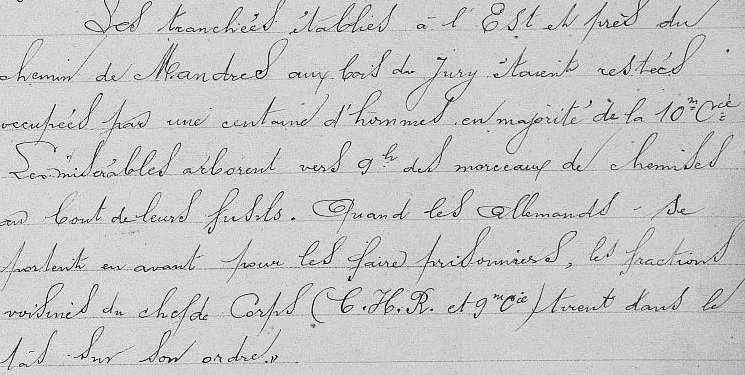 Les tranchées établies à l'Est et près du
chemin de Mandres aux bois du Jury étaient restées
occupées par une centaine d'hommes en majorité de la 10me Cie
Les misérables arborent vers 9h des morceaux de chemises
au bout de leurs fusils. Quand les allemands se
portent en avant pour les faire prisonniers, les fractions
voisines du chef de Corps (C.H.R. et 9me Cie) tirent dans le
tas sur son ordre.»